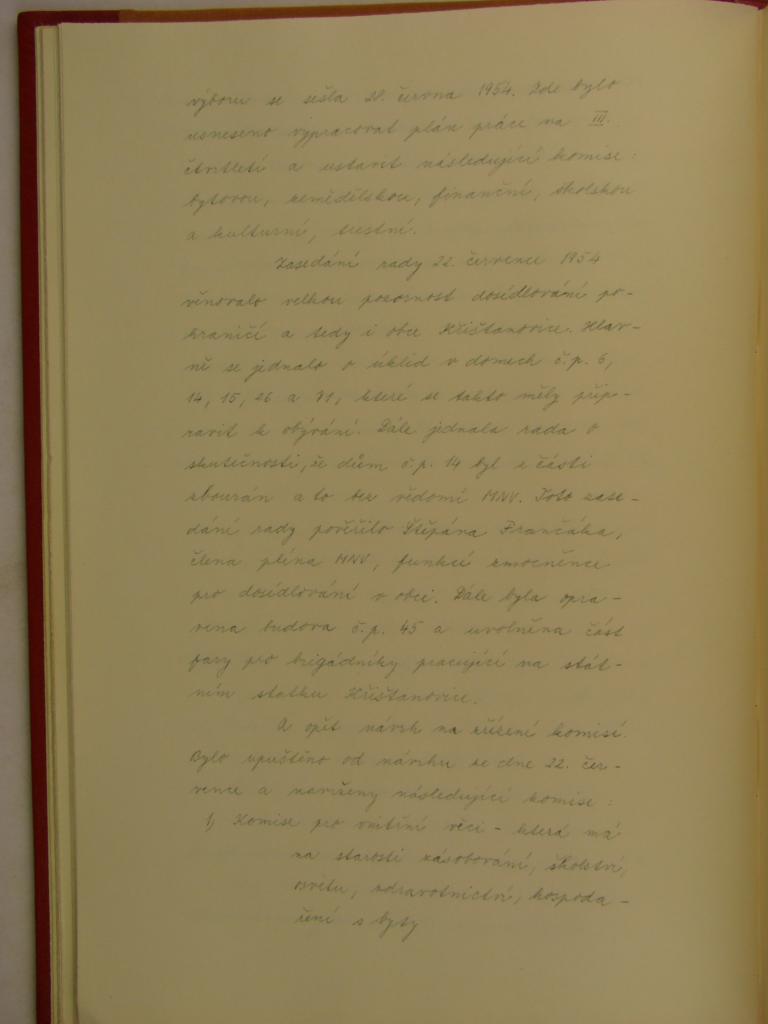 výboru se sešla 28. června 1954. Zde bylo
usneseno vypracovat plán práce na III.
čtvrtletí a ustavit následující komise:
bytovou, zemědělskou, finanční, školskou
a kulturní, trestní.
Zasedání rady 22. července 1954
věnovalo velkou pozornost dosídlování po-
hraničí a tedy i obce Křišťanovice. Hlav-
ně se jednalo o úklid v domech č.p. 6,
14, 15, 26 a 71, které se takto měly přip-
ravit k obývání. Dále jednala rada o
skutečnosti, že dům č.p. 14 byl z části
zbourán a to bez vědomí MNV. Toto zase-
dání rady pověřilo Štěpána Frančáka,
člena pléna MNV, funkcí zmocněnce
pro dosídlování v obci. Dále byla opra-
vena budova č.p. 45 a uvolněna část
fary pro brigádníky pracující na stát-
ním statku Křišťanovice.
A opět návrh na zřízení komisí.
Bylo upuštěno od návrhu ze dne 22. čer-
vence a navrženy následující komise:
1) Komise pro vnitřní věci - která má
na starosti zásobování, školství,
osvětu, zdravotnictví, hospoda-
ření s byty